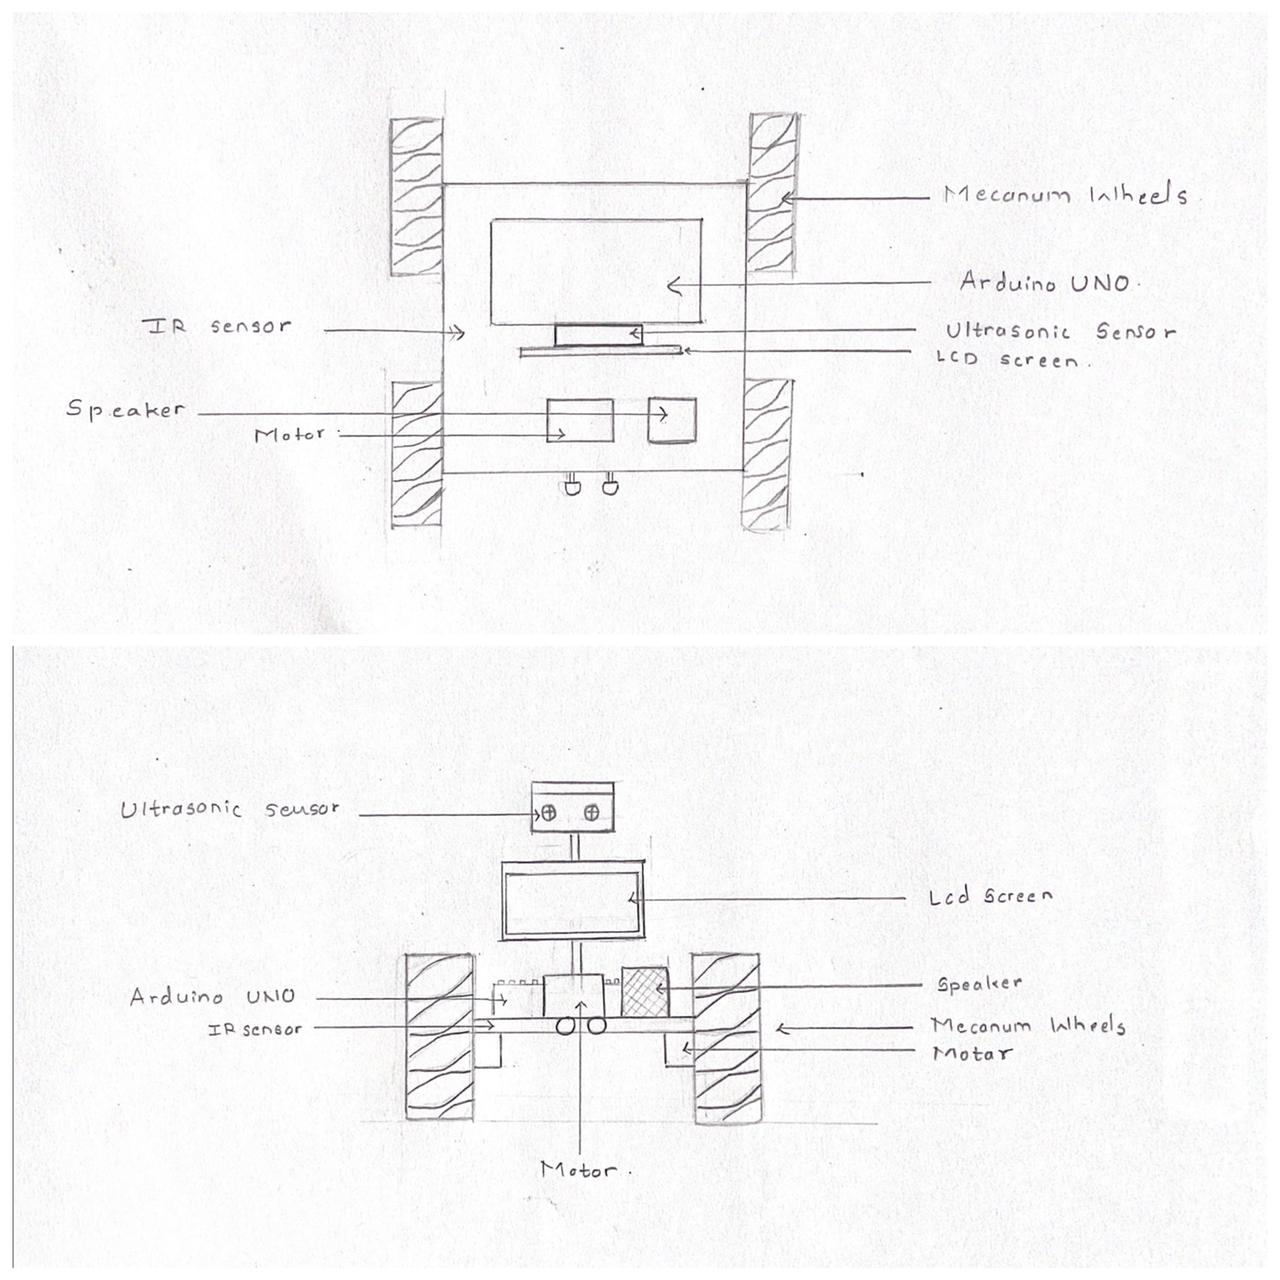 Mecanum Wheels
Arduino UNO.
IR sensor
Ultrasonic Sensor
LCD screen.
Speaker
Motor
Ultrasonic sensor
Lcd Screen
Arduino UNO
Speaker
IR sensor
Mecanum Wheels
Motar
Motor.